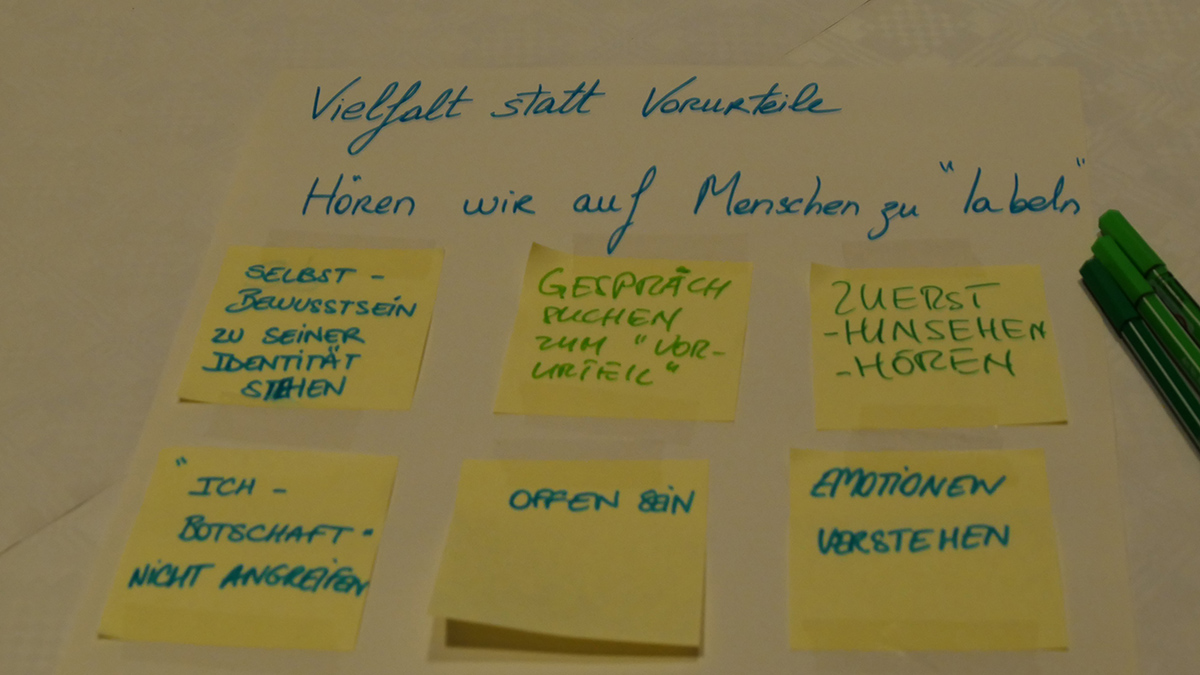 Vielfalt statt Vorurteile
Hören wir auf Menschen zu "labeln"
SELBST -
BEWUSSTSEIN
ZU SEINER
IDENTITÄT
STEHEN
GESPRÄCH
SUCHEN
ZUM "VOR-
URTEIL"
ZUERST
-HINSEHEN
-HÖREN
"ICH -
BOTSCHAFT"
NICHT ANGREIFEN
OFFEN SEIN
EMOTIONEN
VERSTEHEN